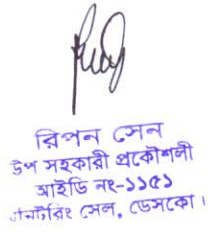 রিপন সেন
উপ সহকারী প্রকৌশলী
আইডি নং-১১৫১
সেল, ডেসকো।